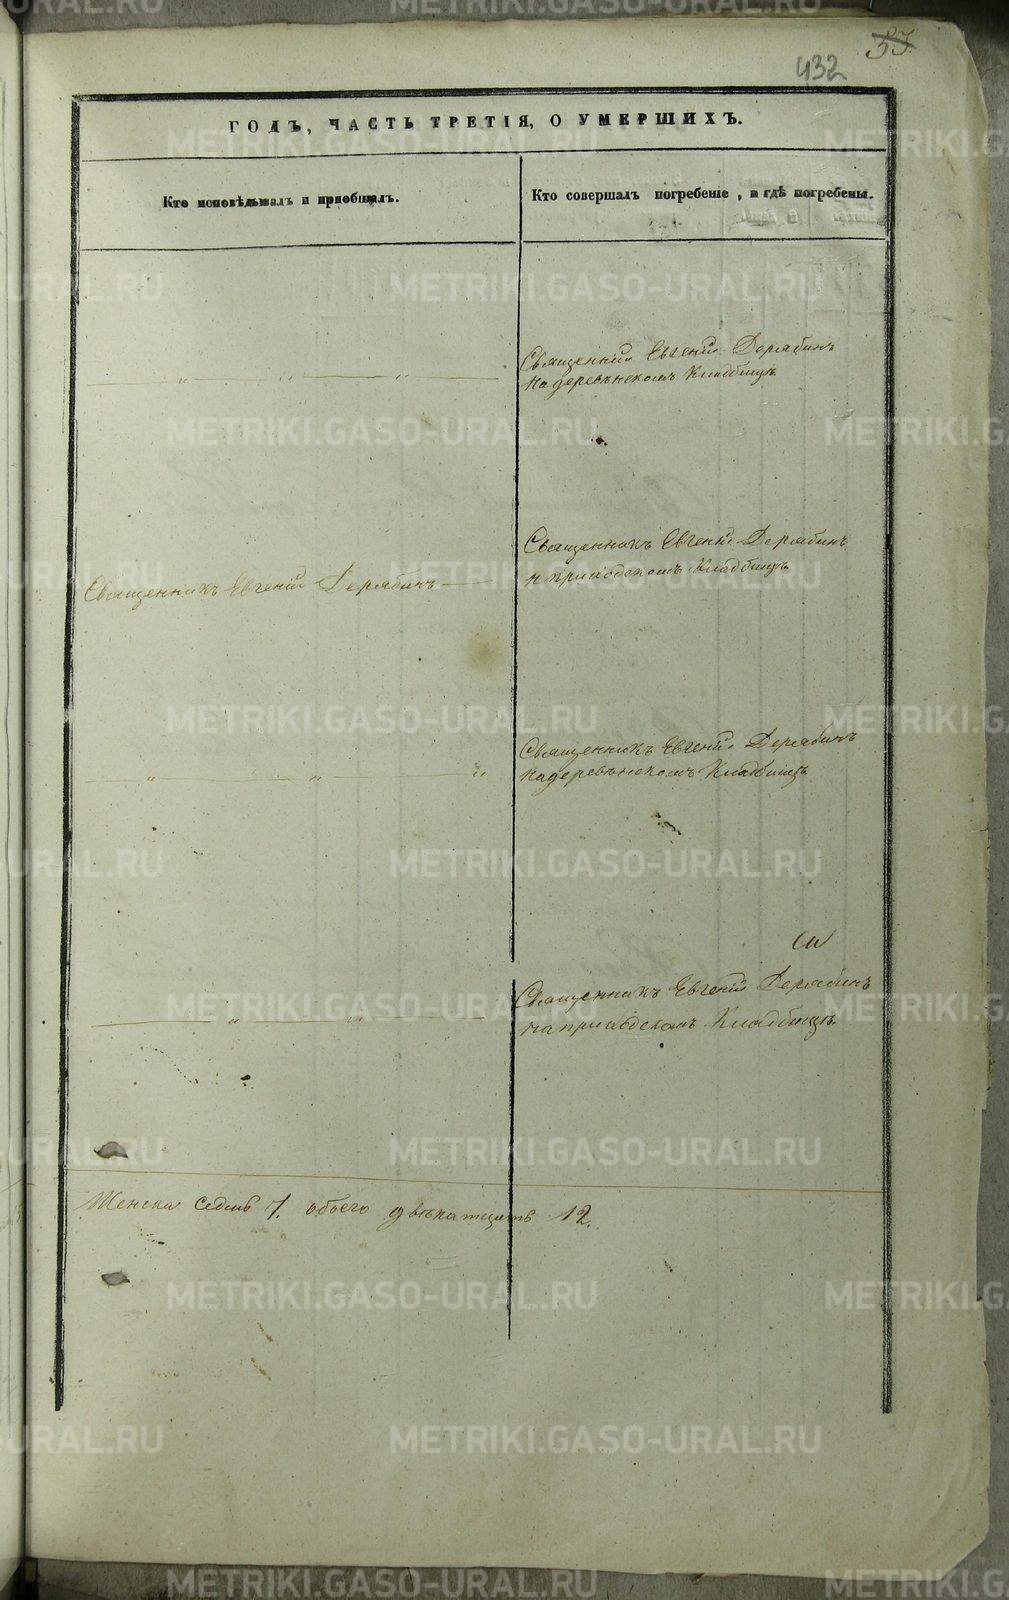 53.
432
ГОДЪ, ЧАСТЬ ТРЕТІЯ, О УМЕРШИХЪ.
Кто исповѣдывалъ и пріобщалъ.
Кто совершалъ погребеніе, и гдѣ погребены.
Священникъ Евгеній Дерябинъ
на деревѣнскомъ Кладбищѣ.
Священникъ Евгеній Дерябинъ
Священникъ Евгеній Дерябинъ
н приходскомъ Кладбищѣ
Священникъ Евгеній Дерябинъ
на деревѣнскомъ Кладбищѣ
Священникъ Евгеній Дерябинъ
на приходскомъ Кладбищѣ.
Женска седмь 7. обоего двѣнатцать 12.
METRIKI.GASO-URAL.RU